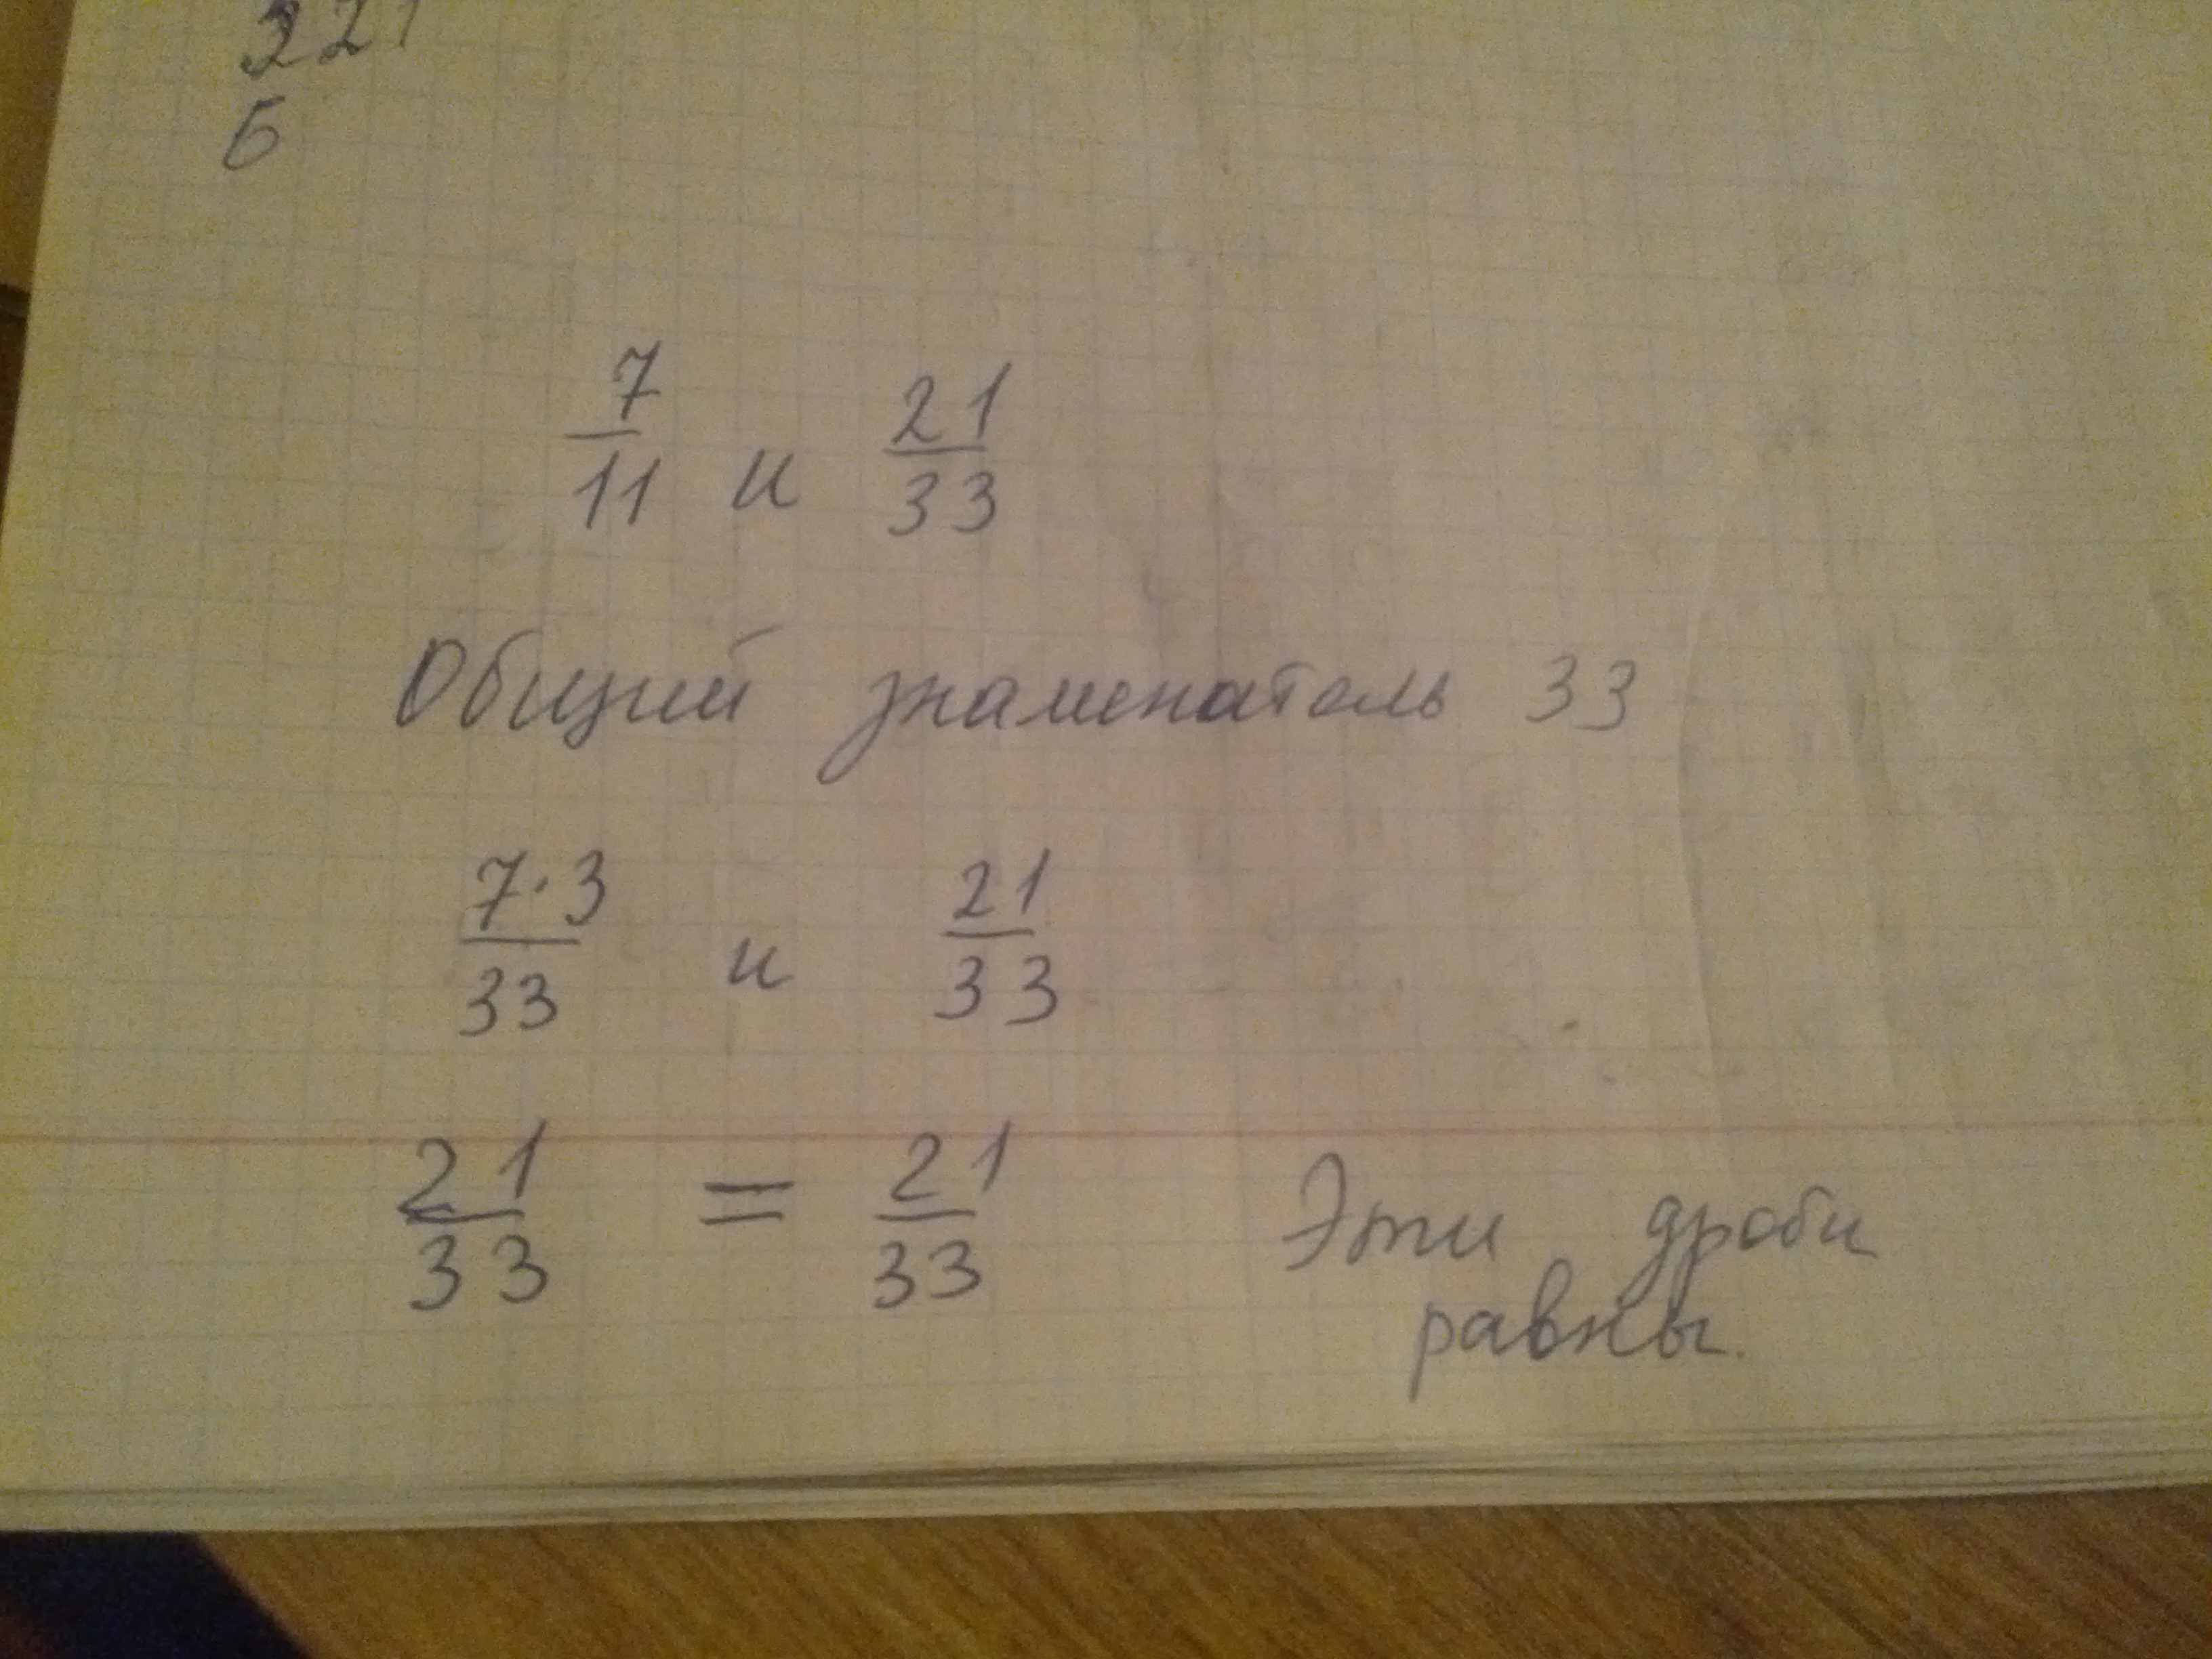 221
б
7/11 и 21/33
Общий знаменатель 33
7·3/33 и 21/33
21/33 = 21/33 Эти дроби
равны.